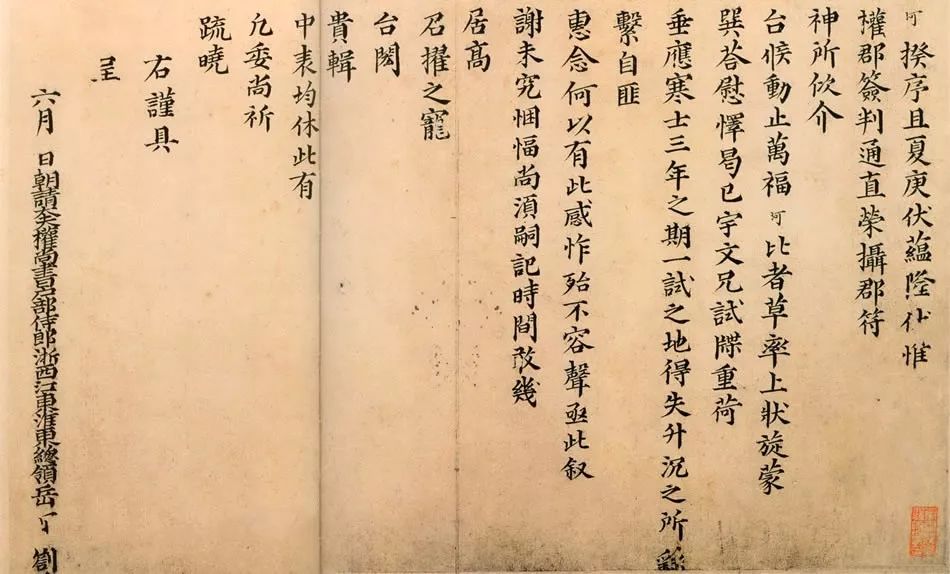 可 揆序且夏庚伏蘊隆伏惟
權郡簽判通直榮攝郡符
神所攸介
台候動止萬福 可 比者草率上狀旋蒙
巽荅慰懌曷已宇文兄試牒重荷
垂應寒士三年之期一試之地得失升沉之所
繫自匪
惠念何以有此感怍殆不容聲亟此叙
謝未究悃愊尚須嗣記時間敢幾
居髙
召擢之寵
台閎
貴輯
中表均休此有
凣委尚祈
疏曉
右謹具
呈
六月 日朝請大夫權尚書户部侍郎浙西江東淮東總領岳 可 劄